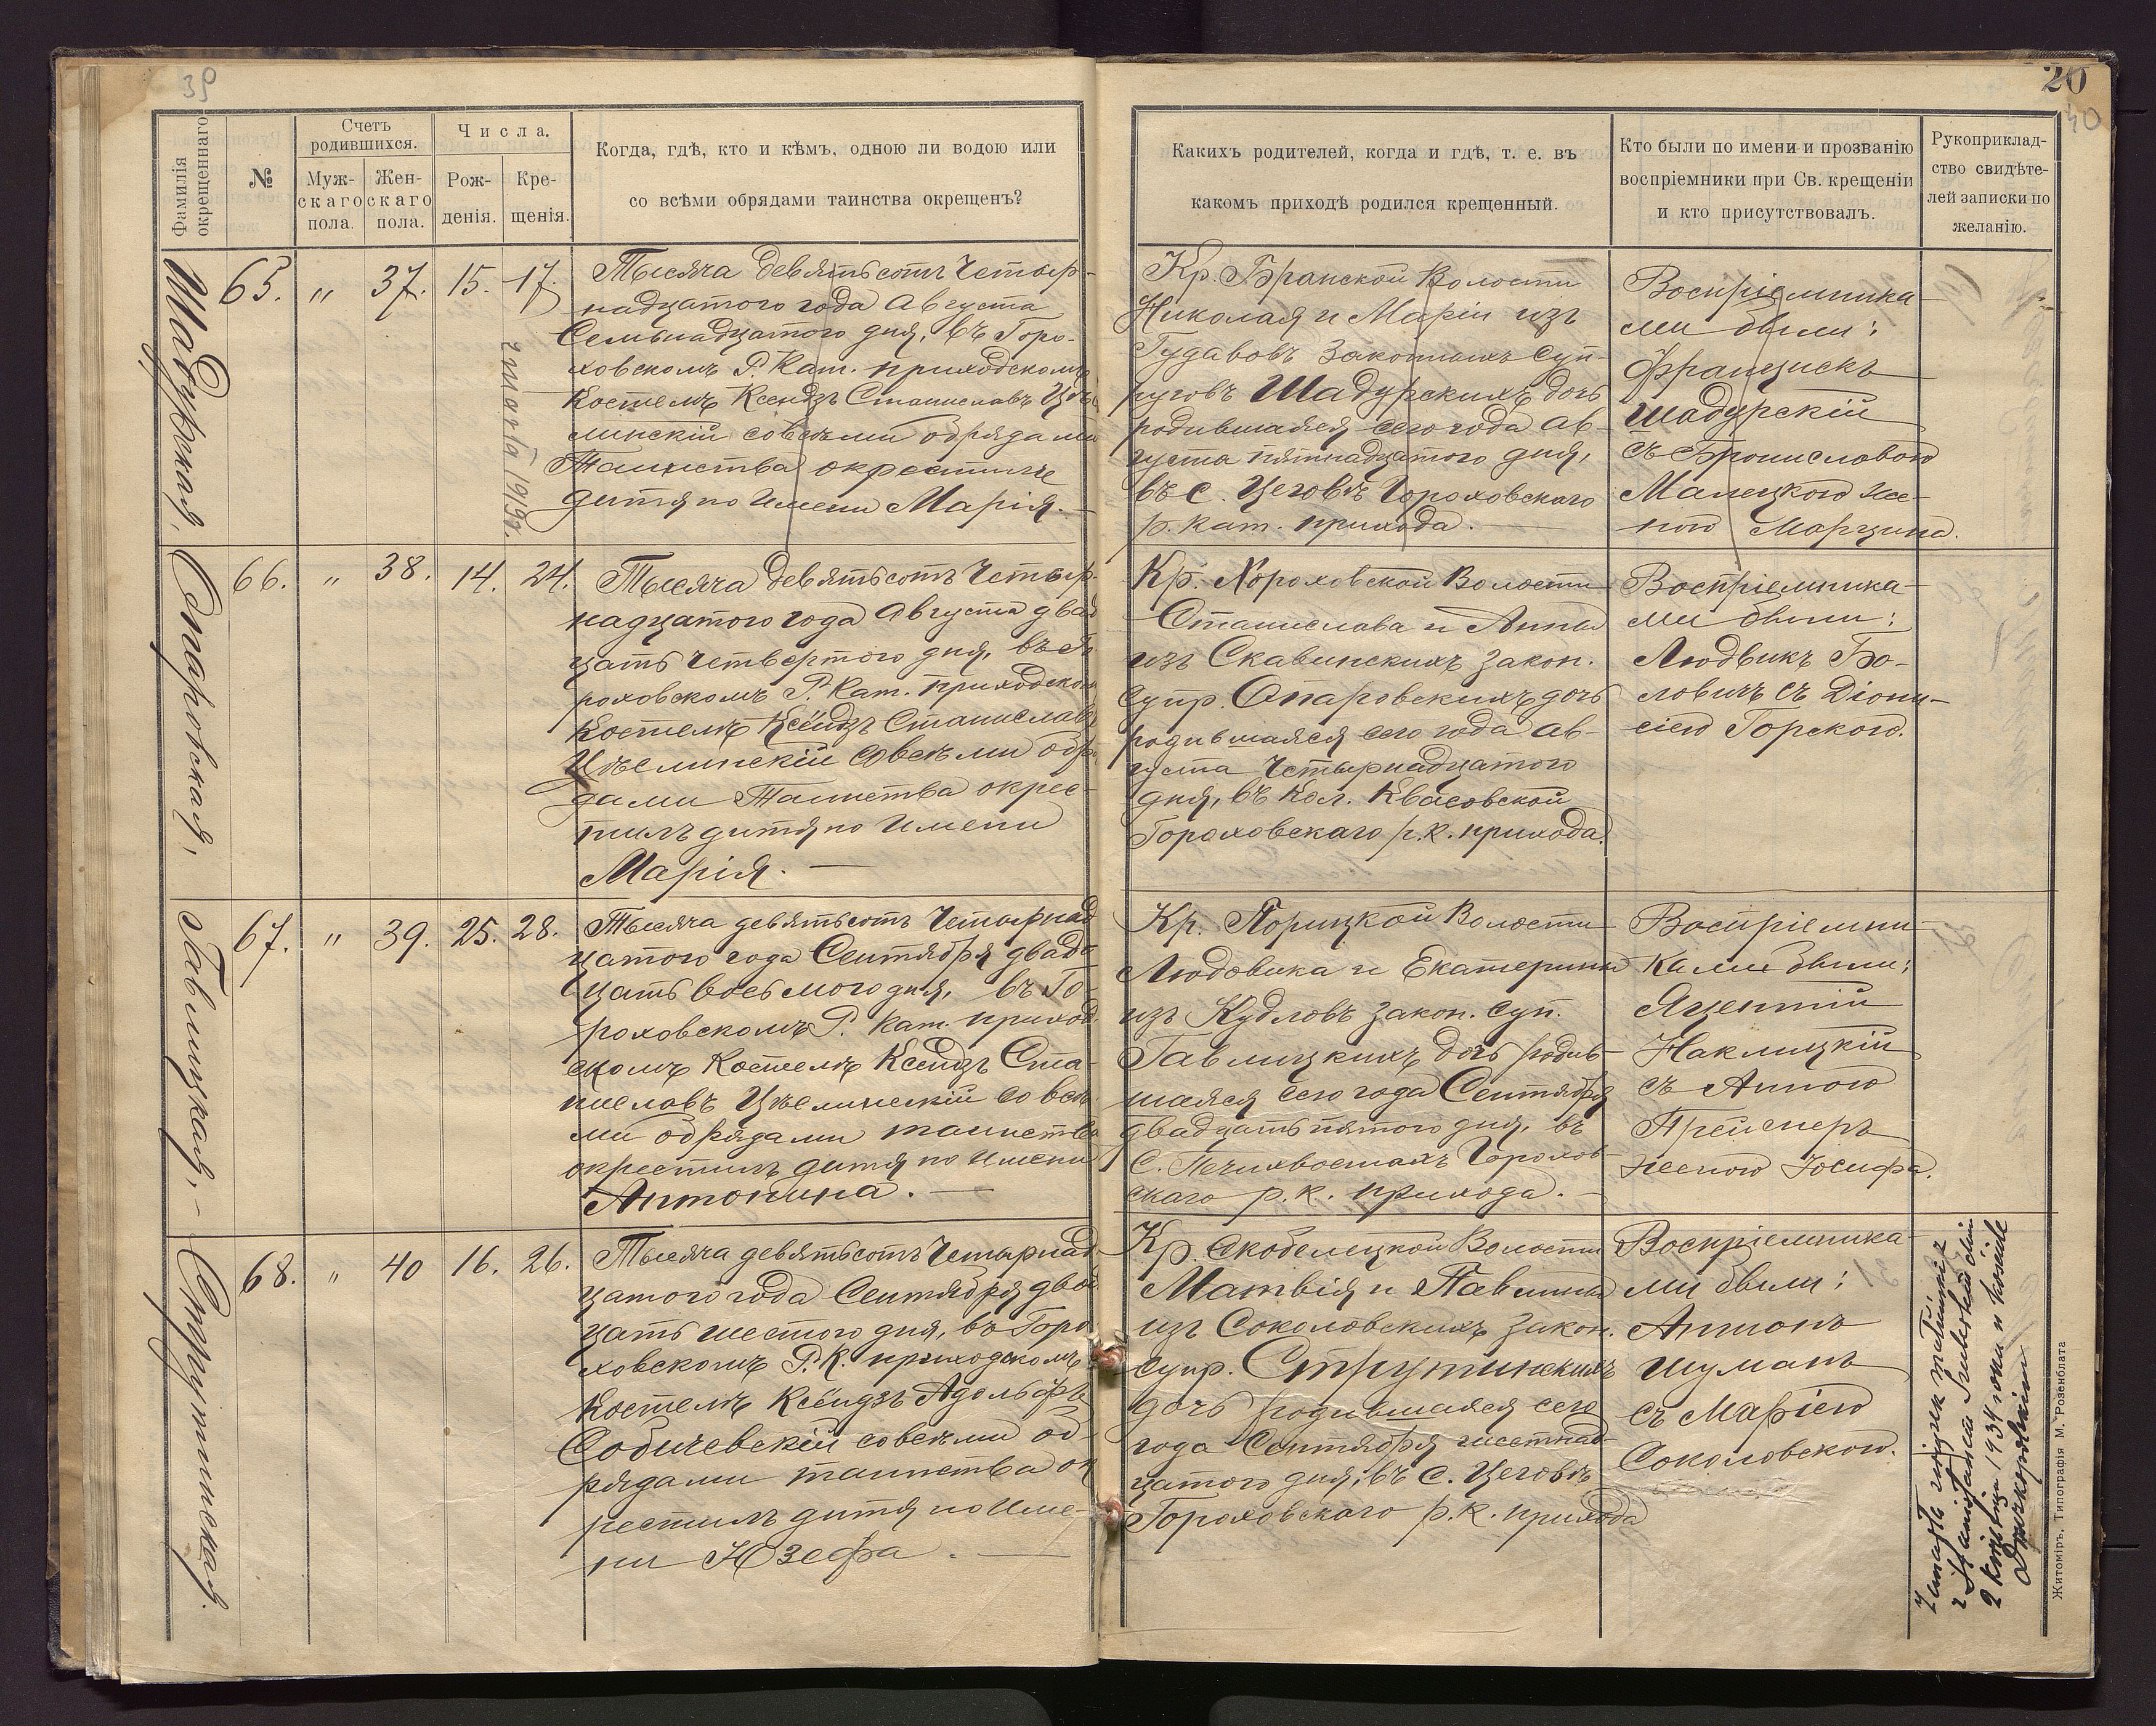 39
20
40
Фамилія окрещеннаго
№
Счетъ родившихся.
Муж-
скаго
пола.
Жен-
скаго
пола.
Числа.
Рож-
денія.
Кре-
щенія.
Когда, гдѣ, кто и кѣмъ, одною ли водою или
со всѣми обрядами таинства окрещенъ?
Какихъ родителей, когда и гдѣ, т. е. въ
какомъ приходѣ родился крещенный.
Кто были по имени и прозванію
воспріемники при Св. крещеніи
и кто присутствовалъ.
Рукоприклад-
ство свидѣте-
лей записки по
желанію.
Шадурская,
65. " 37. 15. 17.
zmarła 1919 r.
Тысяча девятьсотъ четыр-
надцатого года Августа
Семьнадцатого дня, въ Горо-
ховскомъ Р. Кат. приходскомъ
Костелѣ Ксендзъ Станиславъ Цѣ-
линскій со всѣми обрядами
Таинства окрестилъ
дитя по имени Марія. —
Кр. Бранской Волости
Николая и Маріи изъ
Гудавовъ законныхъ суп-
руговъ Шадурскихъ дочь
родившаяся сего года Ав-
густа пятнадцатого дня,
въ с. Цеговѣ Гороховскаго
р. кат. прихода. —
Воспріемника-
ми были:
Францискъ
Шадурскій
съ Брониславою
Малецкою же-
ною Марцина.
Опаровская,
66. " 38. 14. 24.
Тысяча девятьсотъ четыр-
надцатого года Августа двад
цать четвертого дня, въ Го
роховскомъ Р. Кат. приходском
Костелѣ Ксендзъ Станиславъ
Цѣслинскій со всѣми обря
дами Таинства окрес-
тилъ дитя по имени
Марія. —
Кр. Хороховской Волости
Станислава и Анны
изъ Скавинскихъ закон.
супр. Опаровскихъ дочь
родившаяся сего года Ав-
густа Четырнадцатого
дня, въ кол. Квасовской
Гороховскаго р. к. прихода.
Воспріемника-
ми были:
Людвикъ Бо-
ловичъ съ Діони-
сіею Горскою.
Гавлицкая, —
67. " 39. 25. 28.
Тысяча девятьсотъ Четырнад
цатого года Сентября двад
цать восьмого дня, въ Го-
роховскомъ Р. Кат. приход
скомъ Костелѣ Ксендзъ Ста-
ниславъ Цѣслинскій со всѣ
ми обрядами таинства
окрестилъ дитя по имени
Антонина. —
Кр. Порицкой Волости
Людовика и Екатерины
изъ Кудловъ закон. суп.
Гавлицкихъ дочь родив-
шаяся сего года Сентября
двадцать пятого дня, въ
С. Печихвостахъ Горохов-
скаго р. к. прихода. —
Воспріемни-
ками были:
Яцентій
Наклицкій
съ Анною
Прейснеръ
женою Іосифа.
Струтинская.
68. " 40 16. 26.
Тысяча девятьсотъ Четырнад-
цатого года Сентября двад
цать шестого дня, въ Горо
ховскомъ Р. К. приходскомъ
Костелѣ Ксендзъ Адольфъ
Собичевскій со всѣми об-
рядами таинства ок
рестилъ дитя по име-
ни Юзефа. —
Кр. Скобелецкой Волости
Матвія и Павлины
изъ Соколовскихъ закон.
супр. Струтинскихъ
дочь родившаяся сего
года Сентября шестнад-
цатого дня, въ с. Цеговѣ
Гороховскаго р. к. прихода
Воспріемника-
ми были:
Антонъ
Шуманъ
съ Маріею
Соколовскою.
Zawarła związek małżeński
z dnia
2 kwietnia 1934 roku w kościele
Житоміръ, Типографія М. Розенблата